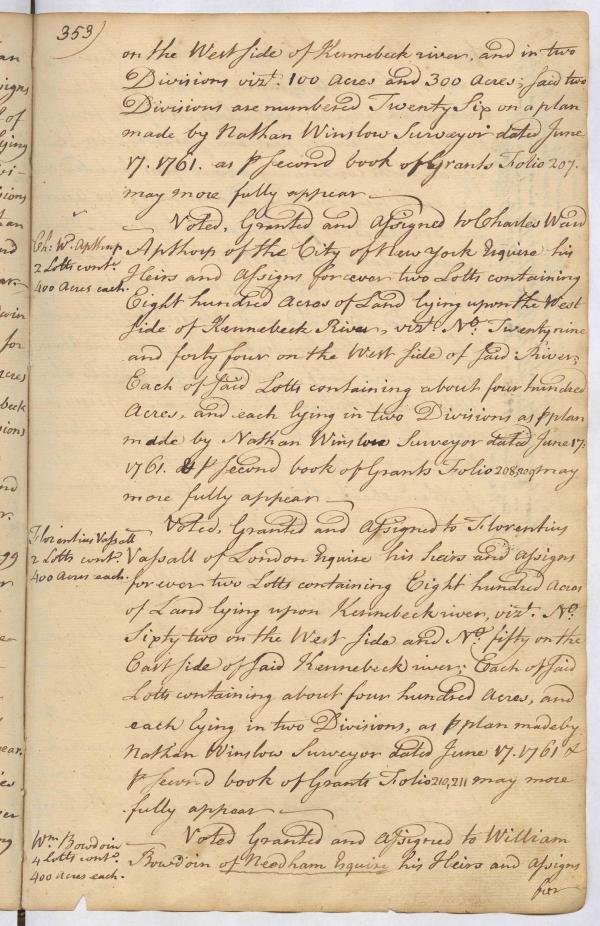 353)
on the West side of Kennebeck river, and in two
Divisions vizt. 100 Acres and 300 Acres; said two
Divisions are numbered Twenty Six on a plan
made by Nathan Winslow Surveyor dated June
17. 1761. as P second book of Grants Folio 207.
may more fully appear —
Ch: Wd. Apthrop
2 Lotts contg.
400 Acres each.
Voted, Granted and Assigned to Charles Ward
Apthorp of the City of New York Esquire his
Heirs and Assigns for ever two Lotts containing
Eight hundred Acres of Land lying upon the West
side of Kennebeck River, vizt. No. Twenty nine
and forty four on the West side of said River;
Each of said Lotts containing about four hundred
Acres, and each lying in two Divisions as P plan
made by Nathan Winslow Surveyor dated June 17.
1761. & P second book of Grants Folio 208,209 may
more fully appear —
Florentius Vassall
2 Lotts contg.
400 Acres each.
Voted, Granted and Assigned to Florentius
Vassall of London Esquire his heirs and assigns
for ever two Lotts containing Eight hundred Acres
of Land lying upon Kennebeck river, vizt. No.
Sixty two on the West side and No. fifty on the
East side of said Kennebeck river; Each of said
Lotts containing about four hundred Acres, and
each lying in two Divisions, as P plan made by
Nathan Winslow Surveyor dated June 17. 1761 &
P second book of Grants Folio 210,211 may more
fully appear —
Wm. Bowdoin
4 Lotts contg.
400 Acres each.
Voted Granted and Assigned to William
Bowdoin of Needham Esquire his Heirs and Assigns
for